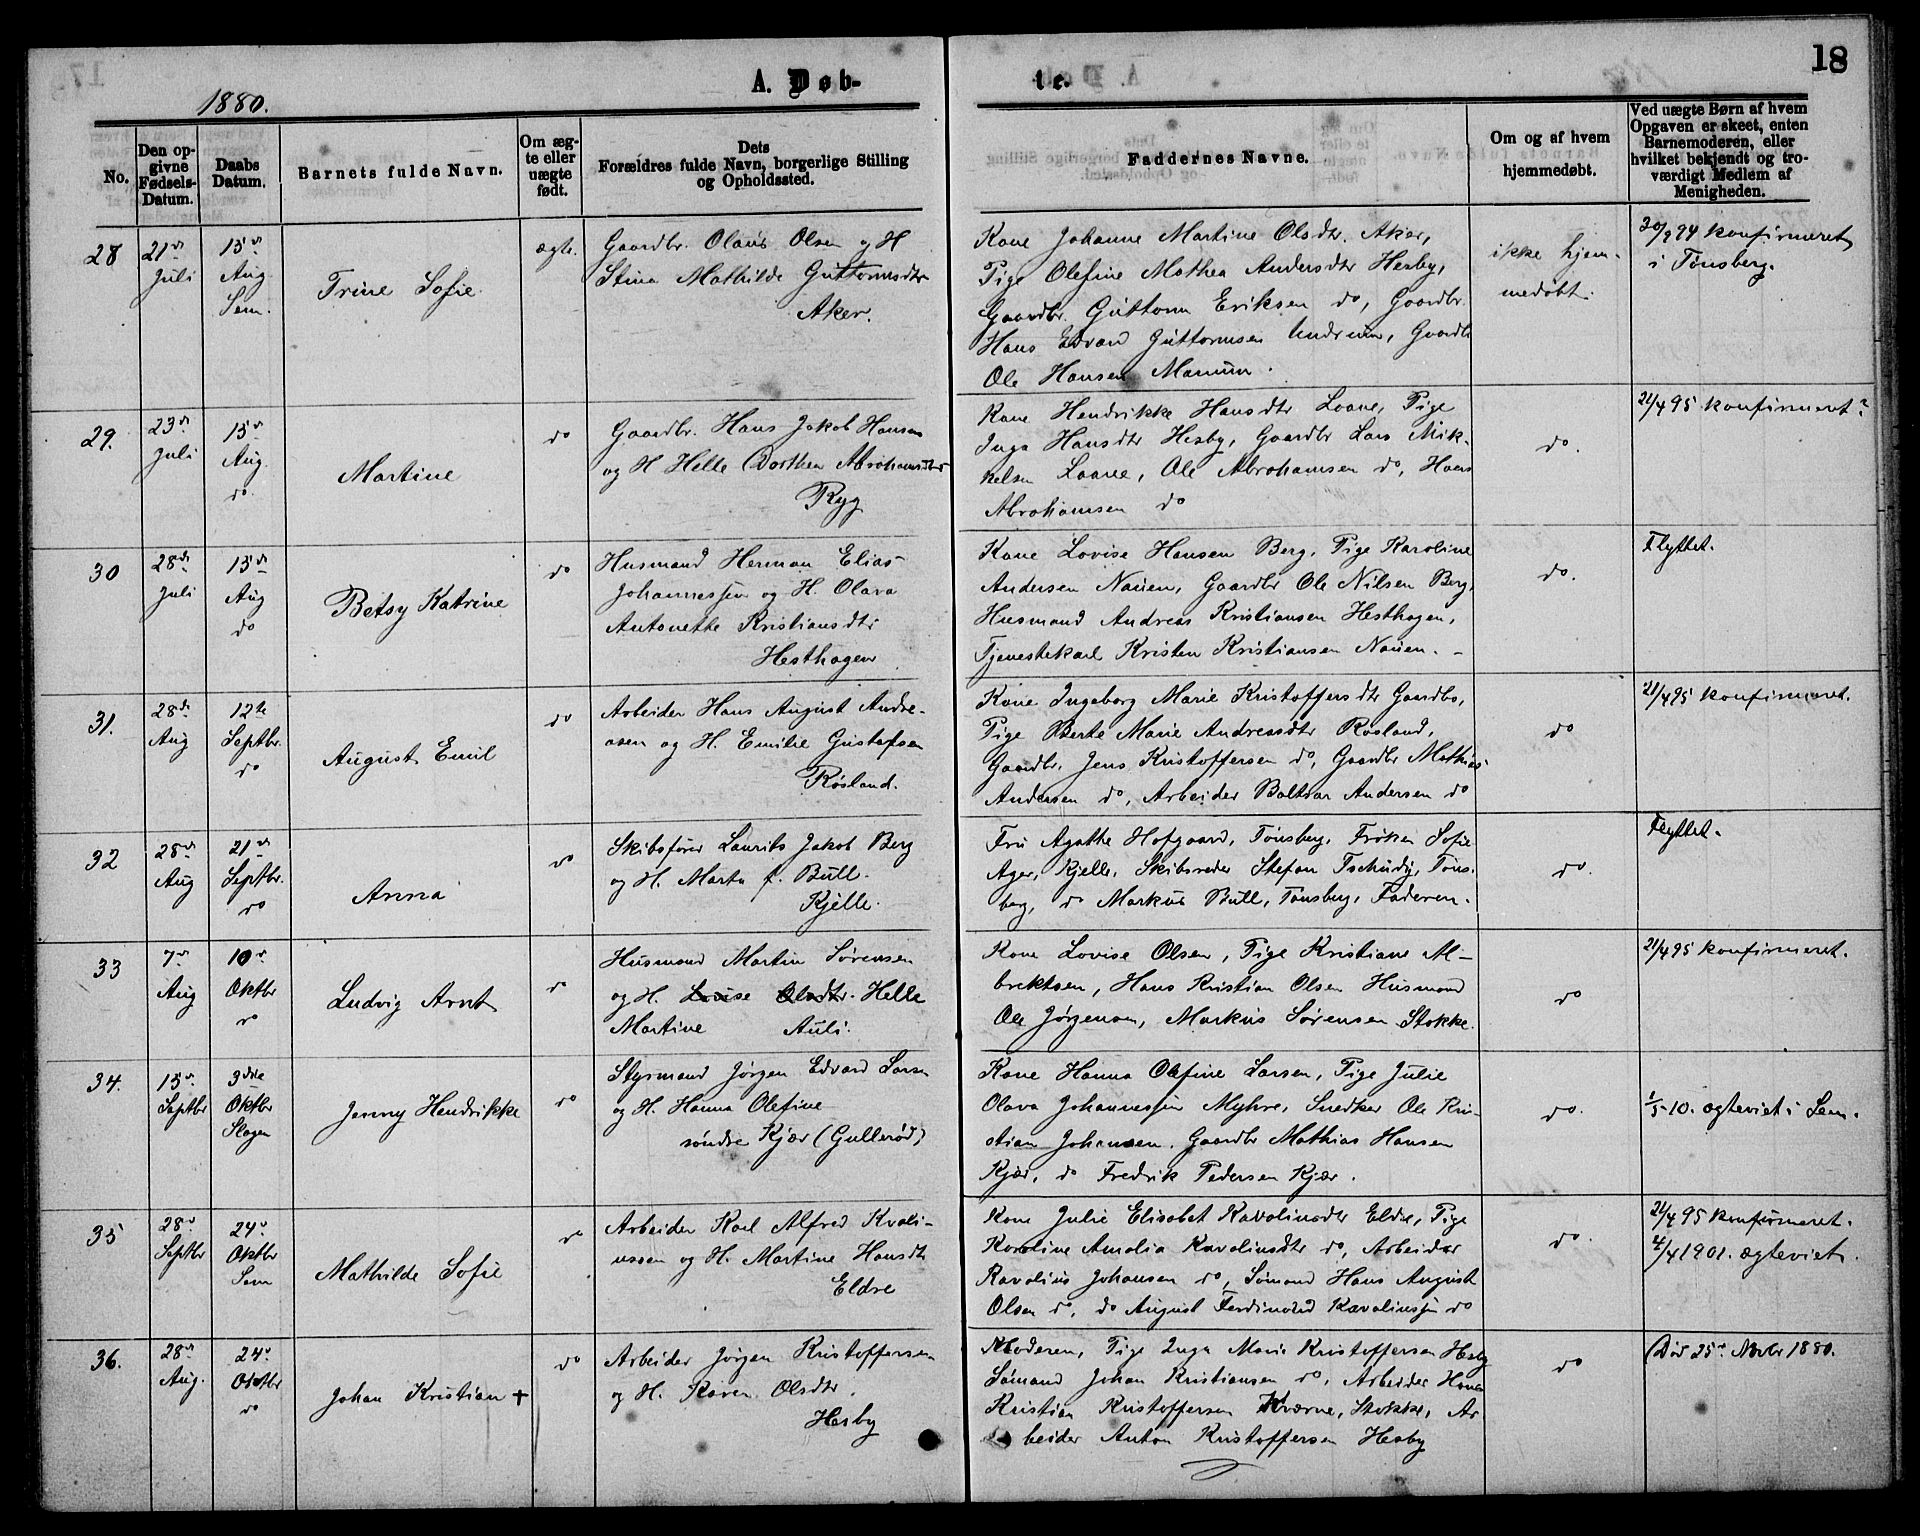 18
A. Døb-
te.
1880.
No.
Den op-
givne
Fødsels-
Datum.
Daabs
Datum.
Barnets fulde Navn.
Om æg-
te eller
uægte
født.
Dets
Forældres fulde Navn, borgerlige Stilling
og Opholdssted.
Faddernes Navne.
Om og af hvem
hjemmedøbt.
Ved uægte Børn af hvem
Opgaven er skeet, enten
Barnemoderen, eller
hvilket bekjendt og tro-
værdigt Medlem af
Menigheden.
28
21de
Juli
15de
Aug
Sem.
Trine Sofie
ægte.
Gaardbr. Olaus Olsen og H
Stina Mathilde Guttormsdtr
Aker.
Kone Johanne Martine Olsdtr. Aker,
Pige Olefine Mathea Andersdtr Hesby,
Gaardbr. Guttorm Eriksen do, Gaardbr.
Hans Edvard Guttormsen Undrum, Gaardb
Ole Hansen Manum.
ikke hjem-
medøbt.
30/9 94 konfirmeret
i Tønsberg.
29.
23de
Juli
15de
Aug
do.
Martine
do
Gaardbr. Hans Jakob Hansen
og H Helle Dorthea Abrahamsdtr
Ryg
Kone Hendrikke Hansdtr Loane, Pige
Inga Hansdtr Hesby, Gaardbr Lars Mik-
kelsen Loane, Ole Abrahamsen do, Hans
Abrahamsen do
do.
21/4 95 konfirmeret?
30
28de
Juli
15de
Aug
do
Betsy Katrine
do
Husmand Herman Elias
Johannessen og H. Olava
Antonette Kristiansdtr
Hesthagen
Kone Lovise Hansen Berg, Pige Karoline
Andersen Nauen, Gaardbr Ole Nilsen Berg,
Husmand Andreas Kristiansen Hesthagen,
Tjenestekarl Kristen Kristiansen Nauen. -
do.
Flyttet.
31.
28de
Aug
12te
Septbr.
do
August Emil
do
Arbeider Hans August Andre-
asen og H. Emilie Gustafsen
Røsland.
Kone Ingeborg Marie Kristoffersdtr Gandbo,
Pige Berte Marie Andreasdtr Rosland,
Gaardbr. Jens Kristoffersen do, Gaardbr Mathias
Andersen do, Arbeider Baltzar Andersen do
do
21/4 95 konfirmeret.
32
28de
Aug
21de
Septbr.
do
Anna
do
Skibsfører Laurits Jakob Berg
og H. Marta f. Bull.
Kjelle.
Fru Agathe Hofgaard, Tønsberg, Frøken Sofie
Ager, Kjelle, Skibsreder Stefan Tschudy, Tøns-
berg, do Markus Bull, Tønsberg, Faderen.
do.
Flyttet.
33
7de
Aug
10de
Oktbr
do
Ludvig Arnt
do
Husmand Martin Sørensen
og H. Lovise Olsdtr. Helle
Martine Auli.
Kone Lovise Olsen, Pige Kristiane Al-
brektsen, Hans Kristian Olsen Husmand
Ole Jørgensen, Markus Sørensen Stokke.
do
21/4 95 konfirmeret.
34.
15de
Septbr
3die
Oktbr
Slagen
Jenny Hendrikke
do
Styrmand Jørgen Edvard Larsen
og H. Hanna Olefine
søndre Kjær (Gullerød)
Kone Hanna Olefine Larsen, Pige Julie
Olava Johannessen Myhre, Snedker Ole Kri-
stian Johansen, Gaardbr Mathias Hansen
Kjær, do Fredrik Pedersen Kjær.
do.
1/5-10. egteviet i Sem.
35
28de
Septbr
24de
Oktbr
Sem
Mathilde Sofie
do
Arbeider Karl Alfred Kvali-
ussen og H. Martine Hansdtr
Eldre
Kone Julie Elisabet Kavalinsdtr Eldre, Pige
Karoline Amalia Kavalinsdtr do, Arbeider
Ravalius Johansen do, Sømand Hans August
Olsen do, do August Ferdinand Kavalinssen do
do.
21/4 95 konfirmeret.
4/4 1901. egteviet.
36.
28de
Aug.
24de
Oktbr
do
Johan Kristian +
do
Arbeider Jørgen Kristoffersen
og H. Karen Olsdtr.
Hesby
Moderen, Pige Inga Marie Kristoffersen Hesby
Sømand Johan Kristiansen do, Arbeider Hans
Kristian Kristoffersen Kværne, Stokke, Ar
beider Anton Kristoffersen Hesby
do
Død 25de Novbr 1880.